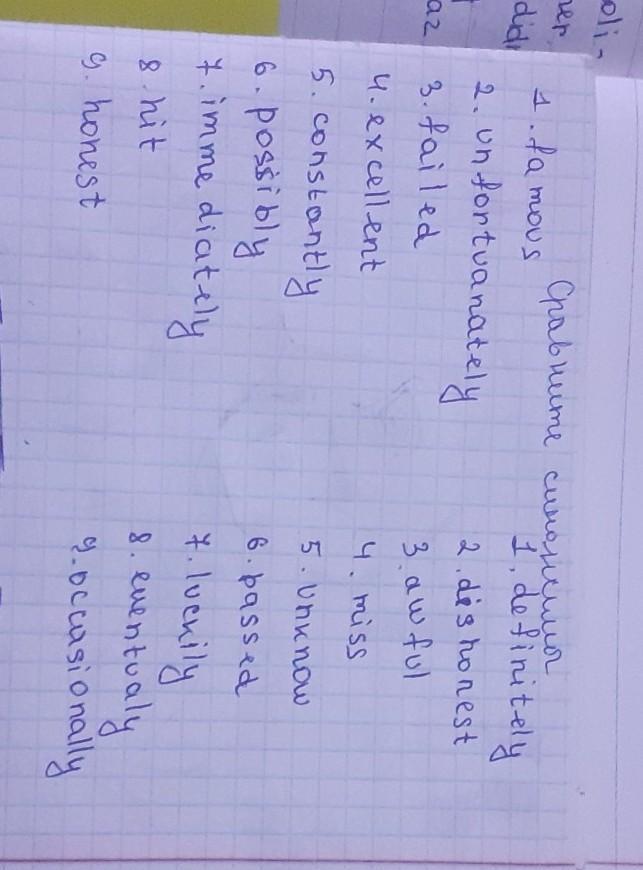 oli-
ner
did
az
Сравните синонимия
1. famous
2. unfortuanately
3. failed
4. excellent
5. constantly
6. possibly
7. immediately
8. hit
9. honest
1. definitely
2. dishonest
3. awful
4. miss
5. unknow
6. passed
7. luckily
8. eventualy
9. occasionally